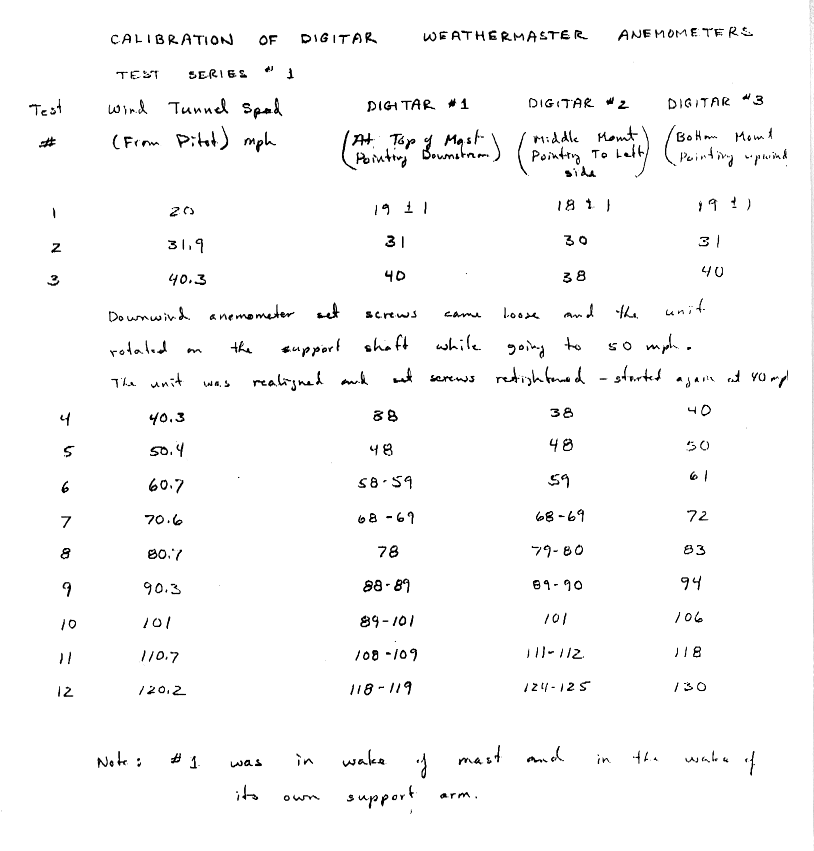 CALIBRATION OF DIGITAR WEATHERMASTER ANEMOMETERS
TEST SERIES # 1
Test Wind Tunnel Speed DIGITAR #1 DIGITAR #2 DIGITAR #3
# (From Pitot) mph (At Top of Mast (Middle Mount (Bottom Mount
Pointing Downstream) Pointing To Left Pointing upwind
side)
1 20 19 ± 1 18 ± 1 19 ± 1
2 31.9 31 30 31
3 40.3 40 38 40
Downwind anemometer set screws came loose and the unit
rotated on the support shaft while going to 50 mph.
The unit was realigned and set screws retightened - started again at 40 mph
4 40.3 38 38 40
5 50.4 48 48 50
6 60.7 58-59 59 61
7 70.6 68-69 68-69 72
8 80.7 78 79-80 83
9 90.3 88-89 89-90 94
10 101 89-101 101 106
11 110.7 108-109 111-112 118
12 120.2 118-119 124-125 130
Note: #1 was in wake of mast and in the wake of
its own support arm.